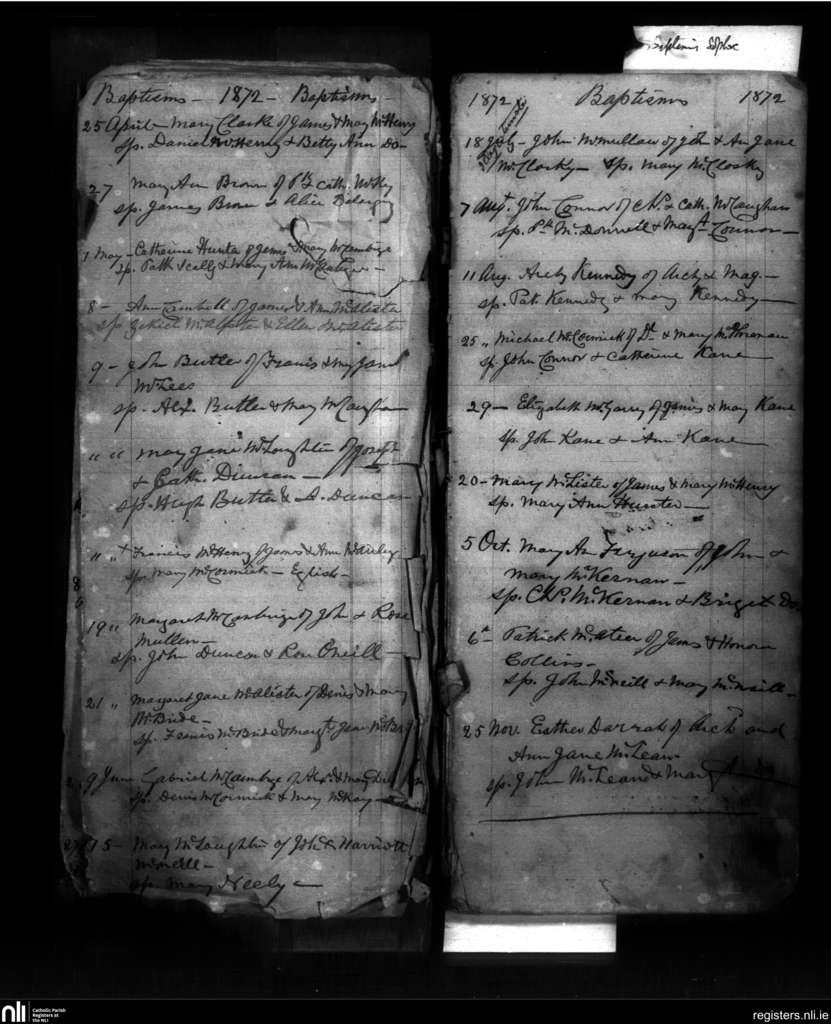 Baptisms — 1872 — Baptisms
25 April — Mary Clarke of James & Mary McHenry
sp. Daniel McHenry & Betty Ann Do —
27 Mary Ann Brown of Pk & Cath.
sp. James Brown & Alice
1 May — Catherine Hunter of James & Mary McCambrige
sp. Patk Scally & Mary Ann
8 — Ann Cambell of James & Ann McAlister
sp. McAlister & Ellen McAlister
9 — John Butler of Francis & My Jane
McLees
sp. Alx. Butler & Mary McCaughan
" " Mary Jane McLoughlin of Joseph
& Cath. Duncan —
sp. Hugh Butler & A. Duncan
" " Francis McHenry of James & Ann
sp. Mary McCormick —
19 " Margaret McCambrige of John & Rose
Mullen —
sp. John Duncan & Rose O'Neill —
21 " Margaret Jane McAlister of Denis & Mary
McBride —
sp. Francis McBride & Margt Jane
9 June Gabriel McCambrige of Alxr. & Mary
sp. Denis McCormick & Mary McKay —
15 — Mary McLaughlin of John & Harriott
McNeill —
sp. Mary Neely —
Baptisms
1872 Baptisms 1872
18 July — John McMullan of John & An Jane
McClosky — sp. Mary McClosky
7 Augt. John Connor of Chs. & Cath. McCaughan
sp. Pk McDonnell & Margt Connor —
11 Aug. Archy Kennedy of Archy & Mag. —
sp. Pat Kennedy & Mary Kennedy —
25 " Michael McCormick of Dl. & Mary
sp. John Connor & Catherine Kane —
29 — Elizabeth McGarry of James & Mary Kane
sp. John Kane & Ann Kane —
20 — Mary McLister of James & Mary McHenry
sp. Mary Ann Hunter —
5 Oct. Mary An Ferguson of John &
Mary McKernan —
sp. Chs. McKernan & Briget Do.
6th Patrick McAteer of James & Honora
Collins —
sp. John McNeill & Mary McNeill —
25 Nov. Esther Darrah of Archd and
Ann Jane McLean
sp. John McLean & Mary
nli
Catholic Parish
Registers at
the NLI
registers.nli.ie